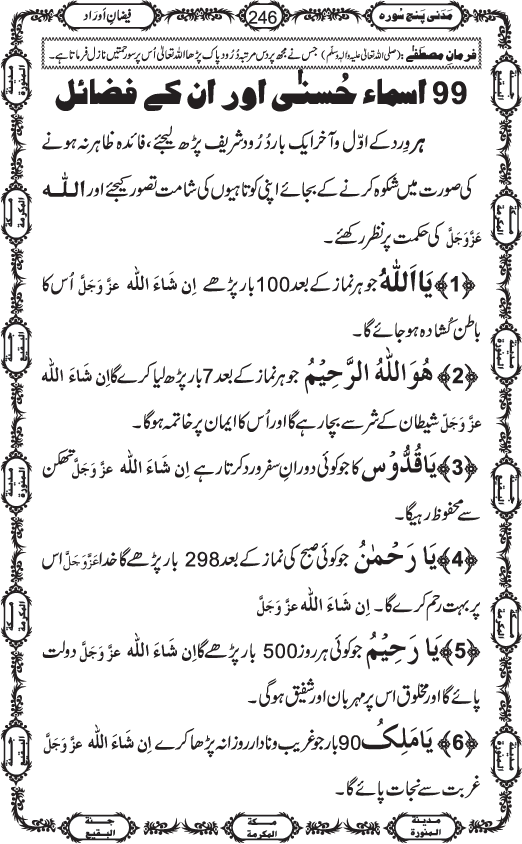 مَدَنی پنج سُورہ
246
فیضانِ اَوراد
فرمانِ مصطَفٰے : (صلی اللہ تعالیٰ علیہ والہٖ وسلّم) جس نے مجھ پر دس مرتبہ دُرُود پاک پڑھا اللہ تعالیٰ اُس پر سو رحمتیں نازل فرماتا ہے۔
99 اسماء حُسنٰی اور ان کے فضائل
ہر وِرد کے اوّل و آخر ایک بار دُرُود شریف پڑھ لیجئے، فائدہ ظاہر نہ ہونے
کی صورت میں شکوہ کرنے کے بجائے اپنی کوتاہیوں کی شامت تصور کیجئے اور اللہ
عَزَّوَجَلَّ کی حکمت پر نظر رکھئے۔
﴿1﴾ یَا اَللّٰهُ جو ہر نماز کے بعد 100 بار پڑھے اِن شَاءَ اللہ عَزَّوَجَلَّ اُس کا
باطن کُشادہ ہو جائے گا۔
﴿2﴾ هُوَ اللّٰهُ الرَّحِیْمُ جو ہر نماز کے بعد 7 بار پڑھ لیا کرے گا اِن شَاءَ اللہ
عَزَّوَجَلَّ شیطان کے شر سے بچا رہے گا اور اُس کا ایمان پر خاتمہ ہوگا۔
﴿3﴾ یَا قُدُّوْسُ کا جو کوئی دورانِ سفر ورد کرتا رہے اِن شَاءَ اللہ عَزَّوَجَلَّ تھکن
سے محفوظ رہیگا۔
﴿4﴾ یَا رَحْمٰنُ جو کوئی صبح کی نماز کے بعد 298 بار پڑھے گا خدا عَزَّوَجَلَّ اس
پر بہت رحم کرے گا۔ اِن شَاءَ اللہ عَزَّوَجَلَّ
﴿5﴾ یَا رَحِیْمُ جو کوئی ہر روز 500 بار پڑھے گا اِن شَاءَ اللہ عَزَّوَجَلَّ دولت
پائے گا اور مخلوق اس پر مہربان اور شفیق ہوگی۔
﴿6﴾ یَا مَلِكُ 90 بار جو غریب و نادار روزانہ پڑھا کرے اِن شَاءَ اللہ عَزَّوَجَلَّ
غربت سے نجات پائے گا۔
مدینة المنورة
مکة المکرمة
جنة البقیع